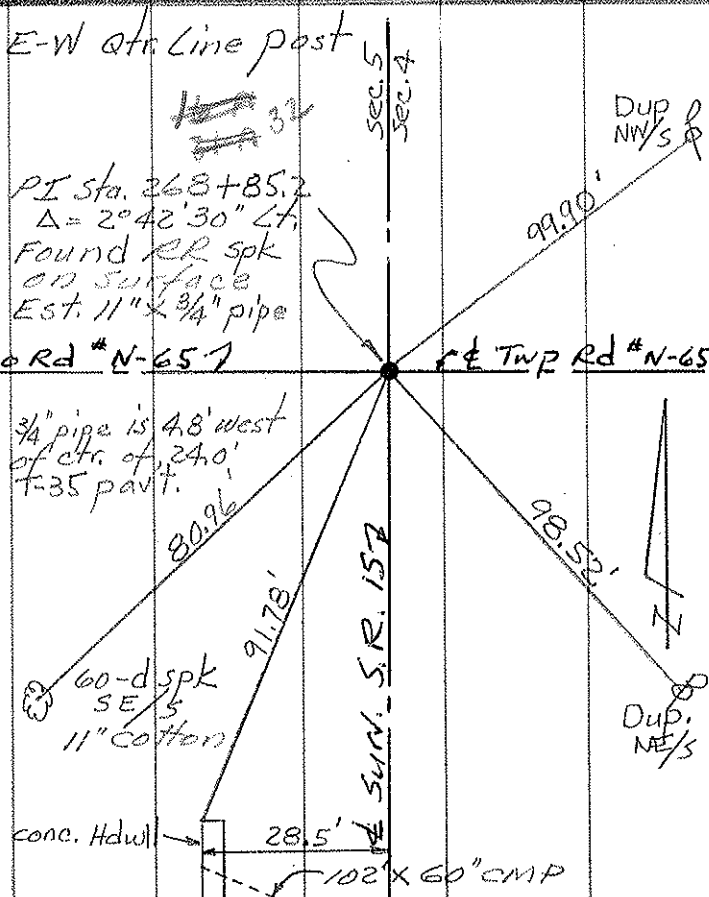 E-W Qtr. Line post
32
Sec. 5
Sec. 4
Dup
NW/S
PI Sta. 268+85.2
Δ = 2°42'30" Lt.
Found RR spk
on surface
Est. 11" x 3/4" pipe
99.90'
o Rd #N-65
℄ Twp Rd #N-65
3/4" pipe is 4.8' west
of ctr. of 24.0'
T-35 pav't.
80.96'
91.78'
98.52'
℄ Surv. S.R. 15
N
60-d spk
SE/S
11" Cotton
Dup.
NE/S
conc. Hdwl
28.5'
102' x 60" CMP